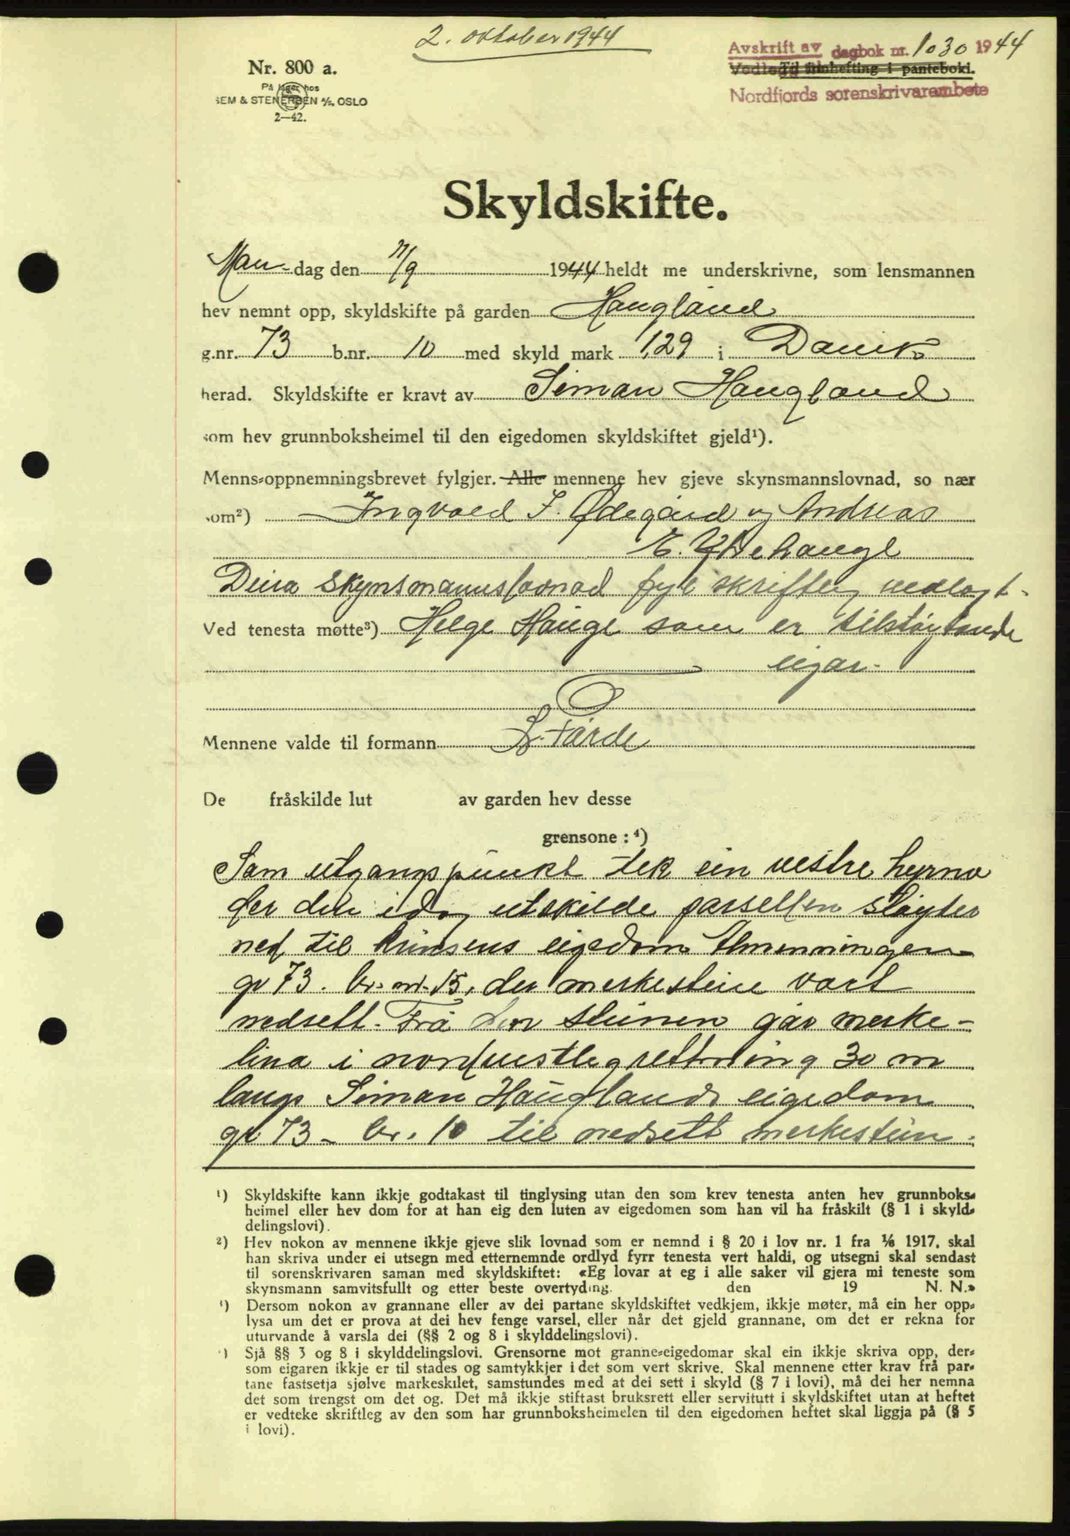 2. oktober 1944
Avskrift av dagbok nr. 1030 1944
Vedlegg Til innhefting i panteboki.
Nordfjords sorenskrivarembete
Nr. 800 a.
På lager hos
SEM & STENERSEN A/S, OSLO
2-42.
Skyldskifte.
Man-dag den 11/9 1944 heldt me underskrivne, som lensmannen
hev nemnt opp, skyldskifte på garden Haugland
g.nr. 73 b.nr. 10 med skyld mark 1,29 i Davik
herad. Skyldskifte er kravt av Simon Haugland
som hev grunnboksheimel til den eigedomen skyldskiftet gjeld¹).
Menns-oppnemningsbrevet fylgjer. Alle mennene hev gjeve skynsmannslovnad, so nær
som²) Ingvald I. Ødegård og Andreas
E. Ytrehauge
Deira skynsmannslovnad fyl skriftleg vedlagt.
Ved tenesta møtte³) Helge Hauge som er tilstøytande
eigar.
Mennene valde til formann L. Førde
De fråskilde lut av garden hev desse
grensone : ⁴)
Som utgangspunkt tek ein vestre hyrna
der den idag utskilde parsellen støyter
ned til kunsens eigedom Almenningen
gr 73. br. nr. 15, der merkestein vart
nedsett. Frå den steinen går merke-
lina i nordvestleg rettning 30 m
langs Simon Hauglands eigedom
gr 73 - br. 10 til nedsett merkestein.
¹) Skyldskifte kann ikkje godtakast til tinglysing utan den som krev tenesta anten hev grunnboks-
heimel eller hev dom for at han eig den luten av eigedomen som han vil ha fråskilt (§ 1 i skyld-
delingslovi).
²) Hev nokon av mennene ikkje gjeve slik lovnad som er nemnd i § 20 i lov nr. 1 fra 1/6 1917, skal
han skriva under ei utsegn med etternemnde ordlyd fyrr tenesta vert haldi, og utsegni skal sendast
til sorenskrivaren saman med skyldskiftet: «Eg lovar at eg i alle saker vil gjera mi teneste som
skynsmann samvitsfullt og etter beste overtyding. den 19 N. N.»
³) Dersom nokon av grannane eller av dei partane skyldskiftet vedkjem, ikkje møter, må ein her opp-
lysa um det er prova at dei hev fenge varsel, eller når det gjeld grannane, om det er rekna for
uturvande å varsla dei (§§ 2 og 8 i skylddelingslovi).
⁴) Sjå §§ 3 og 8 i skylddelingslovi. Grensorne mot granne-eigedomar skal ein ikkje skriva opp, der-
som eigaren ikkje er til stades og samtykkjer i det som vert skrive. Skal mennene etter krav frå par-
tane fastsetja sjølve markeskilet, samstundes med at dei sett i skyld (§ 7 i lovi), må dei her nemna
det som trengst om det og. Det må ikkje stiftast bruksrett eller servitutt i skyldskiftet utan at heftet
er vedteke skriftleg av den som har grunnboksheimelen til den eigedomen heftet skal liggja på (§ 5
i lovi).